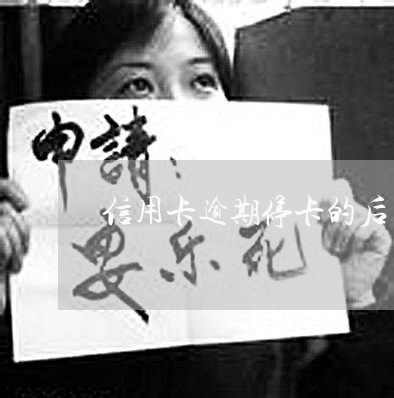 申請：
信用卡逾期停卡的后
要乐死